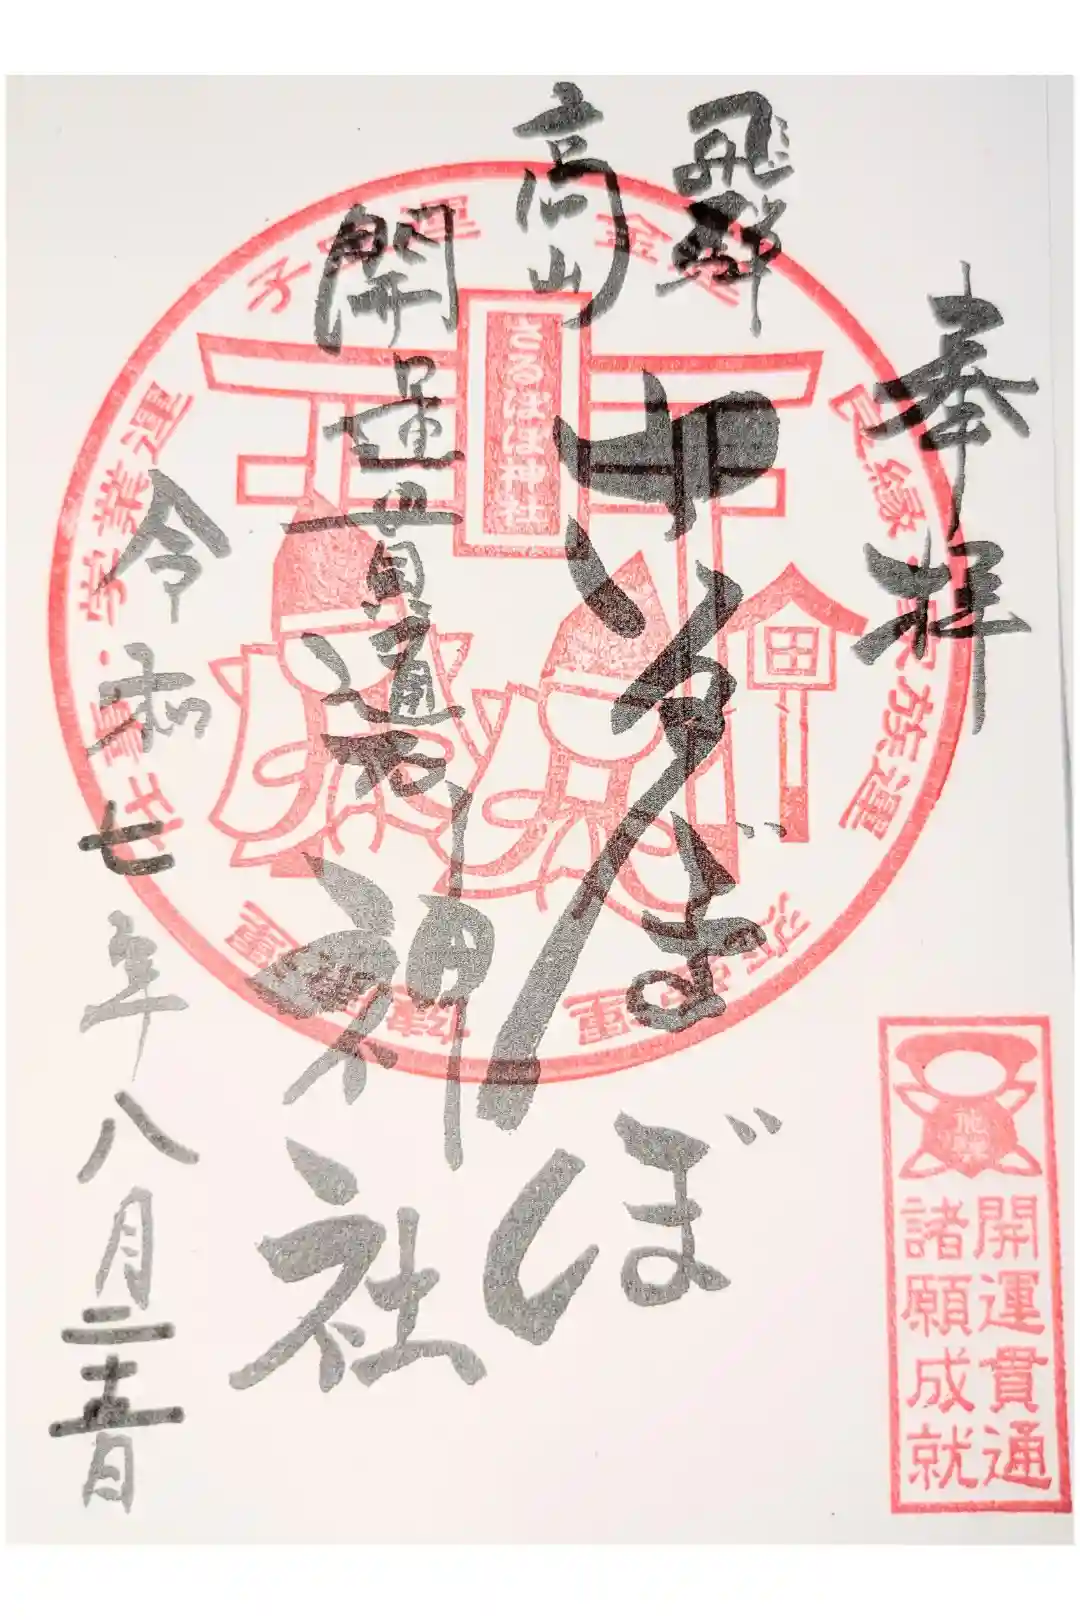 奉拝
飛騨
高山
さるぼぼ
神社
開運貫通
令和七年八月二十五日
さるぼぼ神社
良縁・家族運
金運
子宝運
学業運・仕事
開運貫通
諸願成就